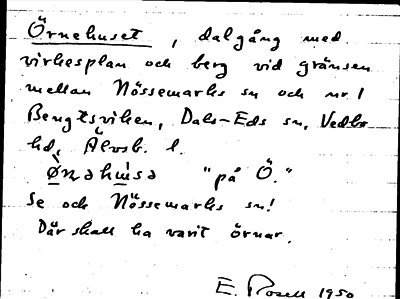 Örnehuset, dalgång med
virkesplan och berg vid gränsen
mellan Nössemarks sn och nr 1
Bengtsviken, Dals-Eds sn, Vedbo
hd, Älvsb. l.
"på Ö."
Se och Nössemarks sn!
Där skall ha varit örnar.
E. Rosell 1950